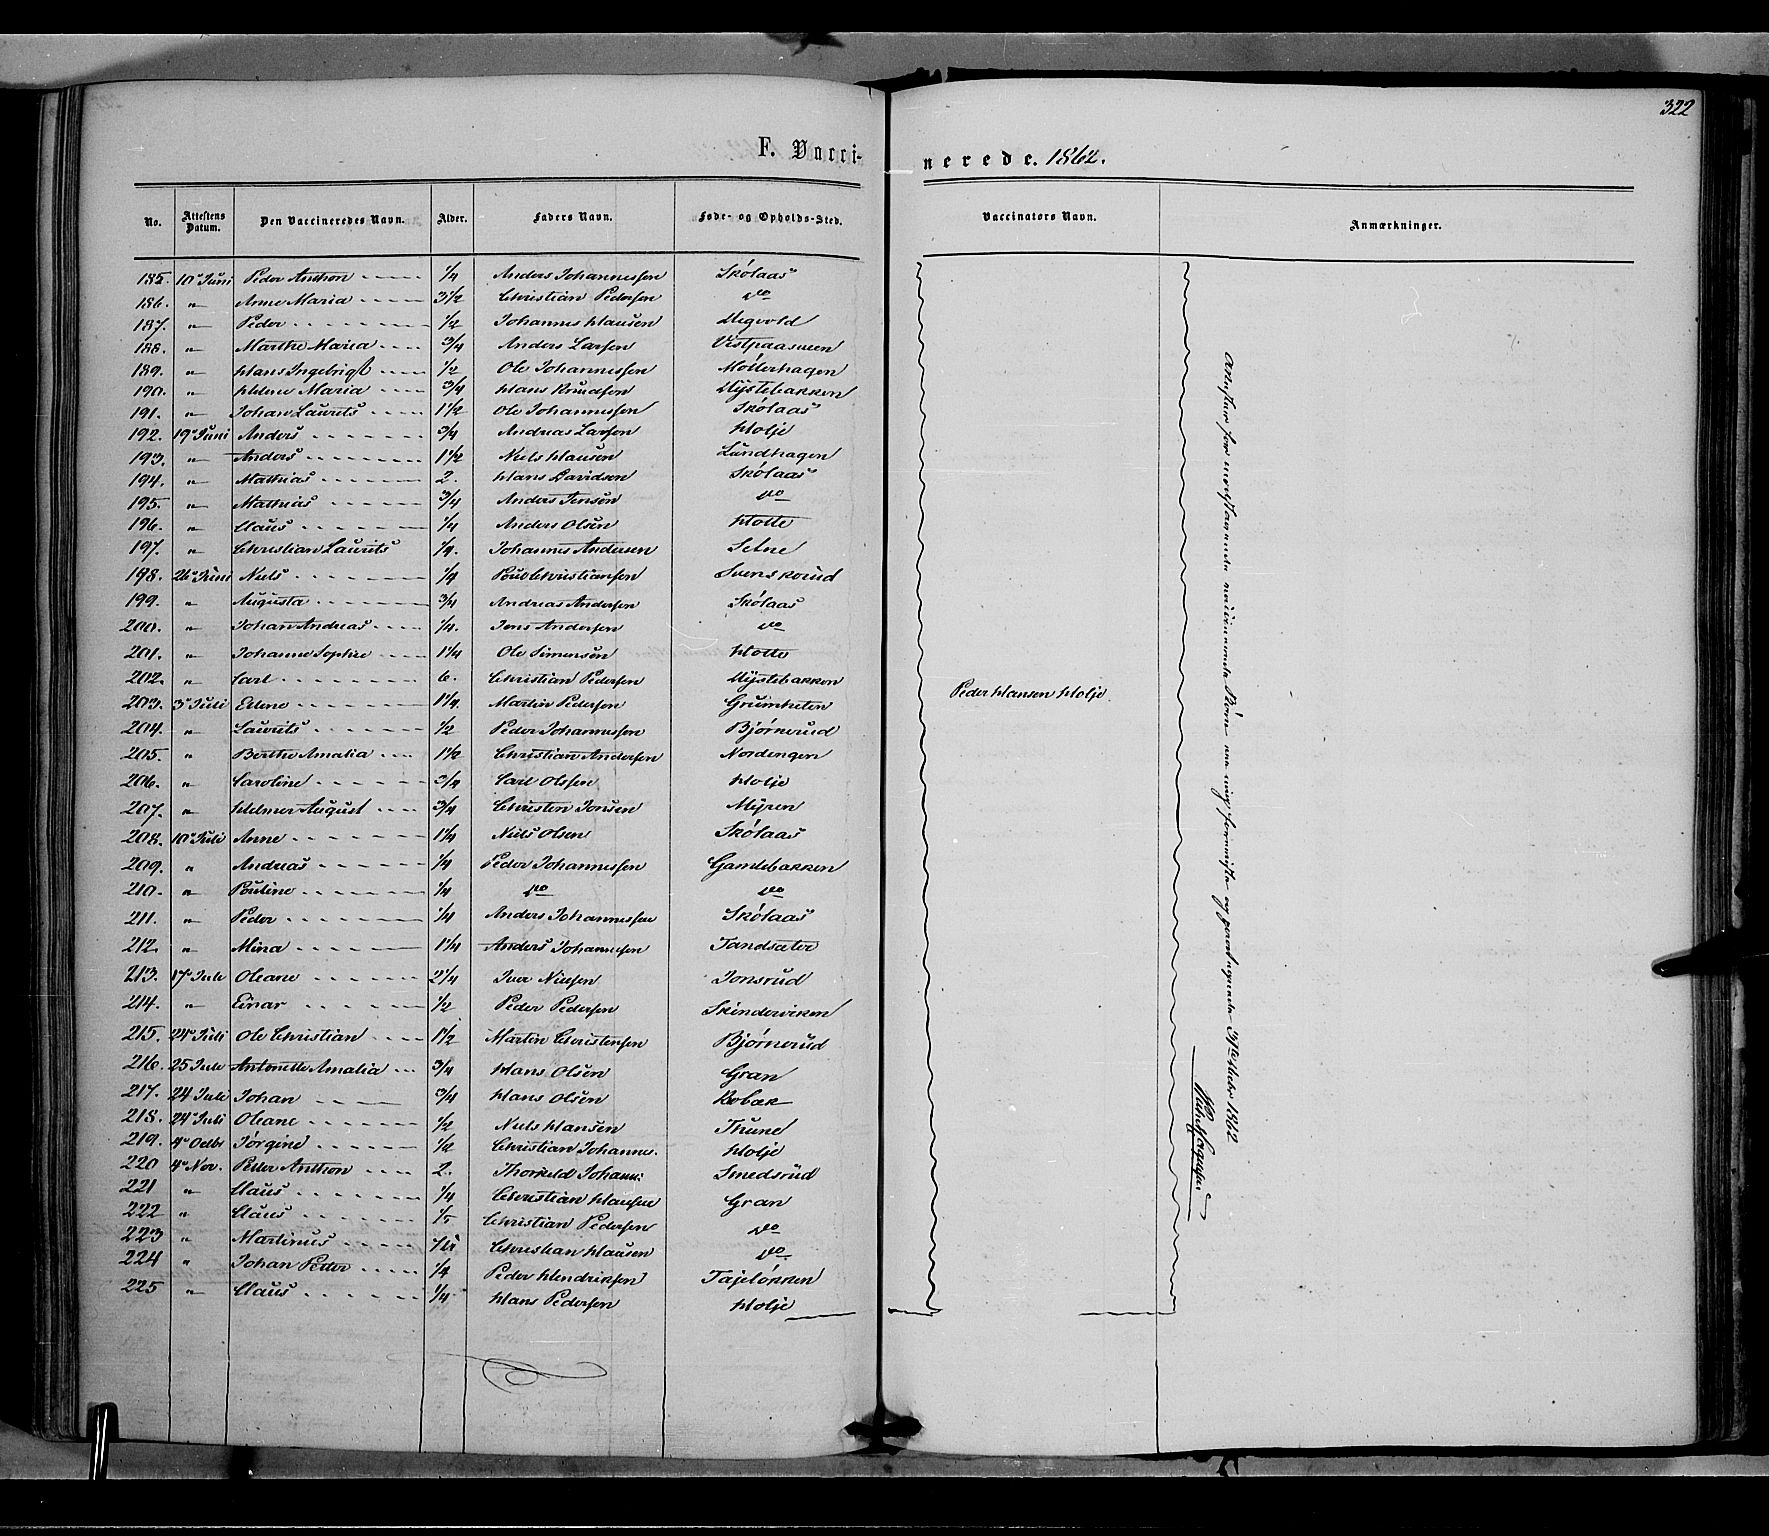 322
F. Vacci-
nerede. 1862.
No. Attestens Datum. Den Vaccineredes Navn. Alder. Faders Navn. Føde- og Opholds-Sted. Vaccinators Navn. Anmærkninger.
185. 10de Juni Peder Anthon 1/4 Anders Johannessen Skølaas
186. " Anne Maria 3 1/2 Christian Pedersen do
187. " Peder 1/2 Johannes Hansen Megvold
188. " Marthe Maria 3/4 Anders Larsen
189. " Hans Ingebrigt 1/2 Ole Johannessen Møllerhagen
190. " Helene Maria 3/4 Hans Knudsen Mystebakken
191. " Johan Laurits 1 1/2 Ole Johannessen Skølaas
192. 19de Juni Anders 3/4 Andreas Larsen Holje
193. " Anders 1 1/2 Niels Hansen Lundhagen
194. " Mathias 2. Hans Davidsen Skølaas
195. " Mathias 3/4 Anders Jensen do
196. " Claus 1/4 Anders Olsen Holte
197. " Christian Laurits 1/4. Johannes Andersen Setne
198. 26de Juni Niels 1/4 Poul Christiansen Svenskerud
199. " Augusta 3/4 Andreas Andersen Skølaas
200. " Johan Andreas 1/4. Jens Andersen do
201. " Johanne Sophie 1 1/4 Ole Simensen Holte
202. " Carl 6. Christian Pedersen Mystebakken
203. 3de Juli Edene 1 1/4. Martin Pedersen Grümheten Peder Hansen Holje.
204. " Laurits 1/2 Peder Johannessen Bjørnerud
205. " Berthe Amalia 1 1/2 Christian Andersen Nordengen
206. " Caroline 3/4 Carl Olsen Holje
207. " Helmer August 3/4 Christen Jonsen Myren
208. 10de Juli Anne 1 1/4 Niels Olsen Skølaas
209. " Andreas 1/4 Peder Johannessen Gamlebakken
210. " Pouline 1/4 do do
211. " Peder 1/4 Anders Johannessen Skølaas
212. " Mina 1 1/4 Anders Johannesen Tandsæter
213. 17de Juli Oleane 2 1/4 Iver Nielsen Jonsrud
214. " Einar 1/2 Peder Pedersen Skinderviken
215. 24de Juli Ole Christian 1 1/2 Martin Christensen Bjørnerud
216. 25 Juli Antonette Amalia 3/4 Hans Olsen Gran
217. 24 Juli Johan 3/4 Hans Olsen Robæk
218. 24de Juli Oleane 1/2 Niels Hansen Thune
219. 4de Octbr Jørgine 1/2 Christian Johannes. Holje
220 4de Nov. Petter Anthon 2. Thorkeld Johans: Smedsrud
221 " Claus 1/4 Christian Hansen Gran
222 " Claus 1/5 Christian Pedersen do
223 " Martinus Christian Hansen do
224 " Johan Petter 1/4 Peder Hendriksen Tajeløkken
225 " Claus 1/4 Hans Pedersen Holje
Attester for ovenstaaende vaccinerede Børn 1862